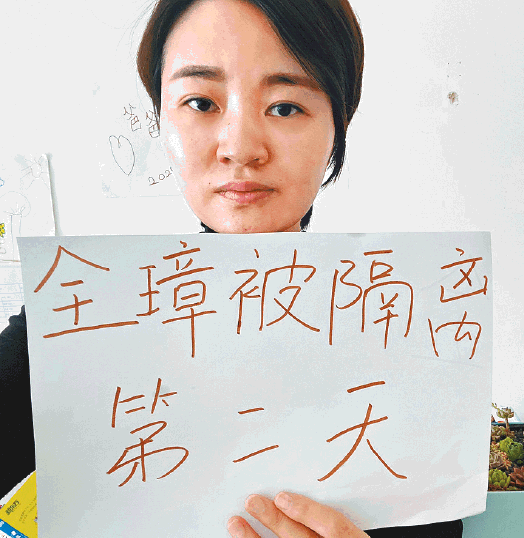 爸爸
全璋被隔离
第二天